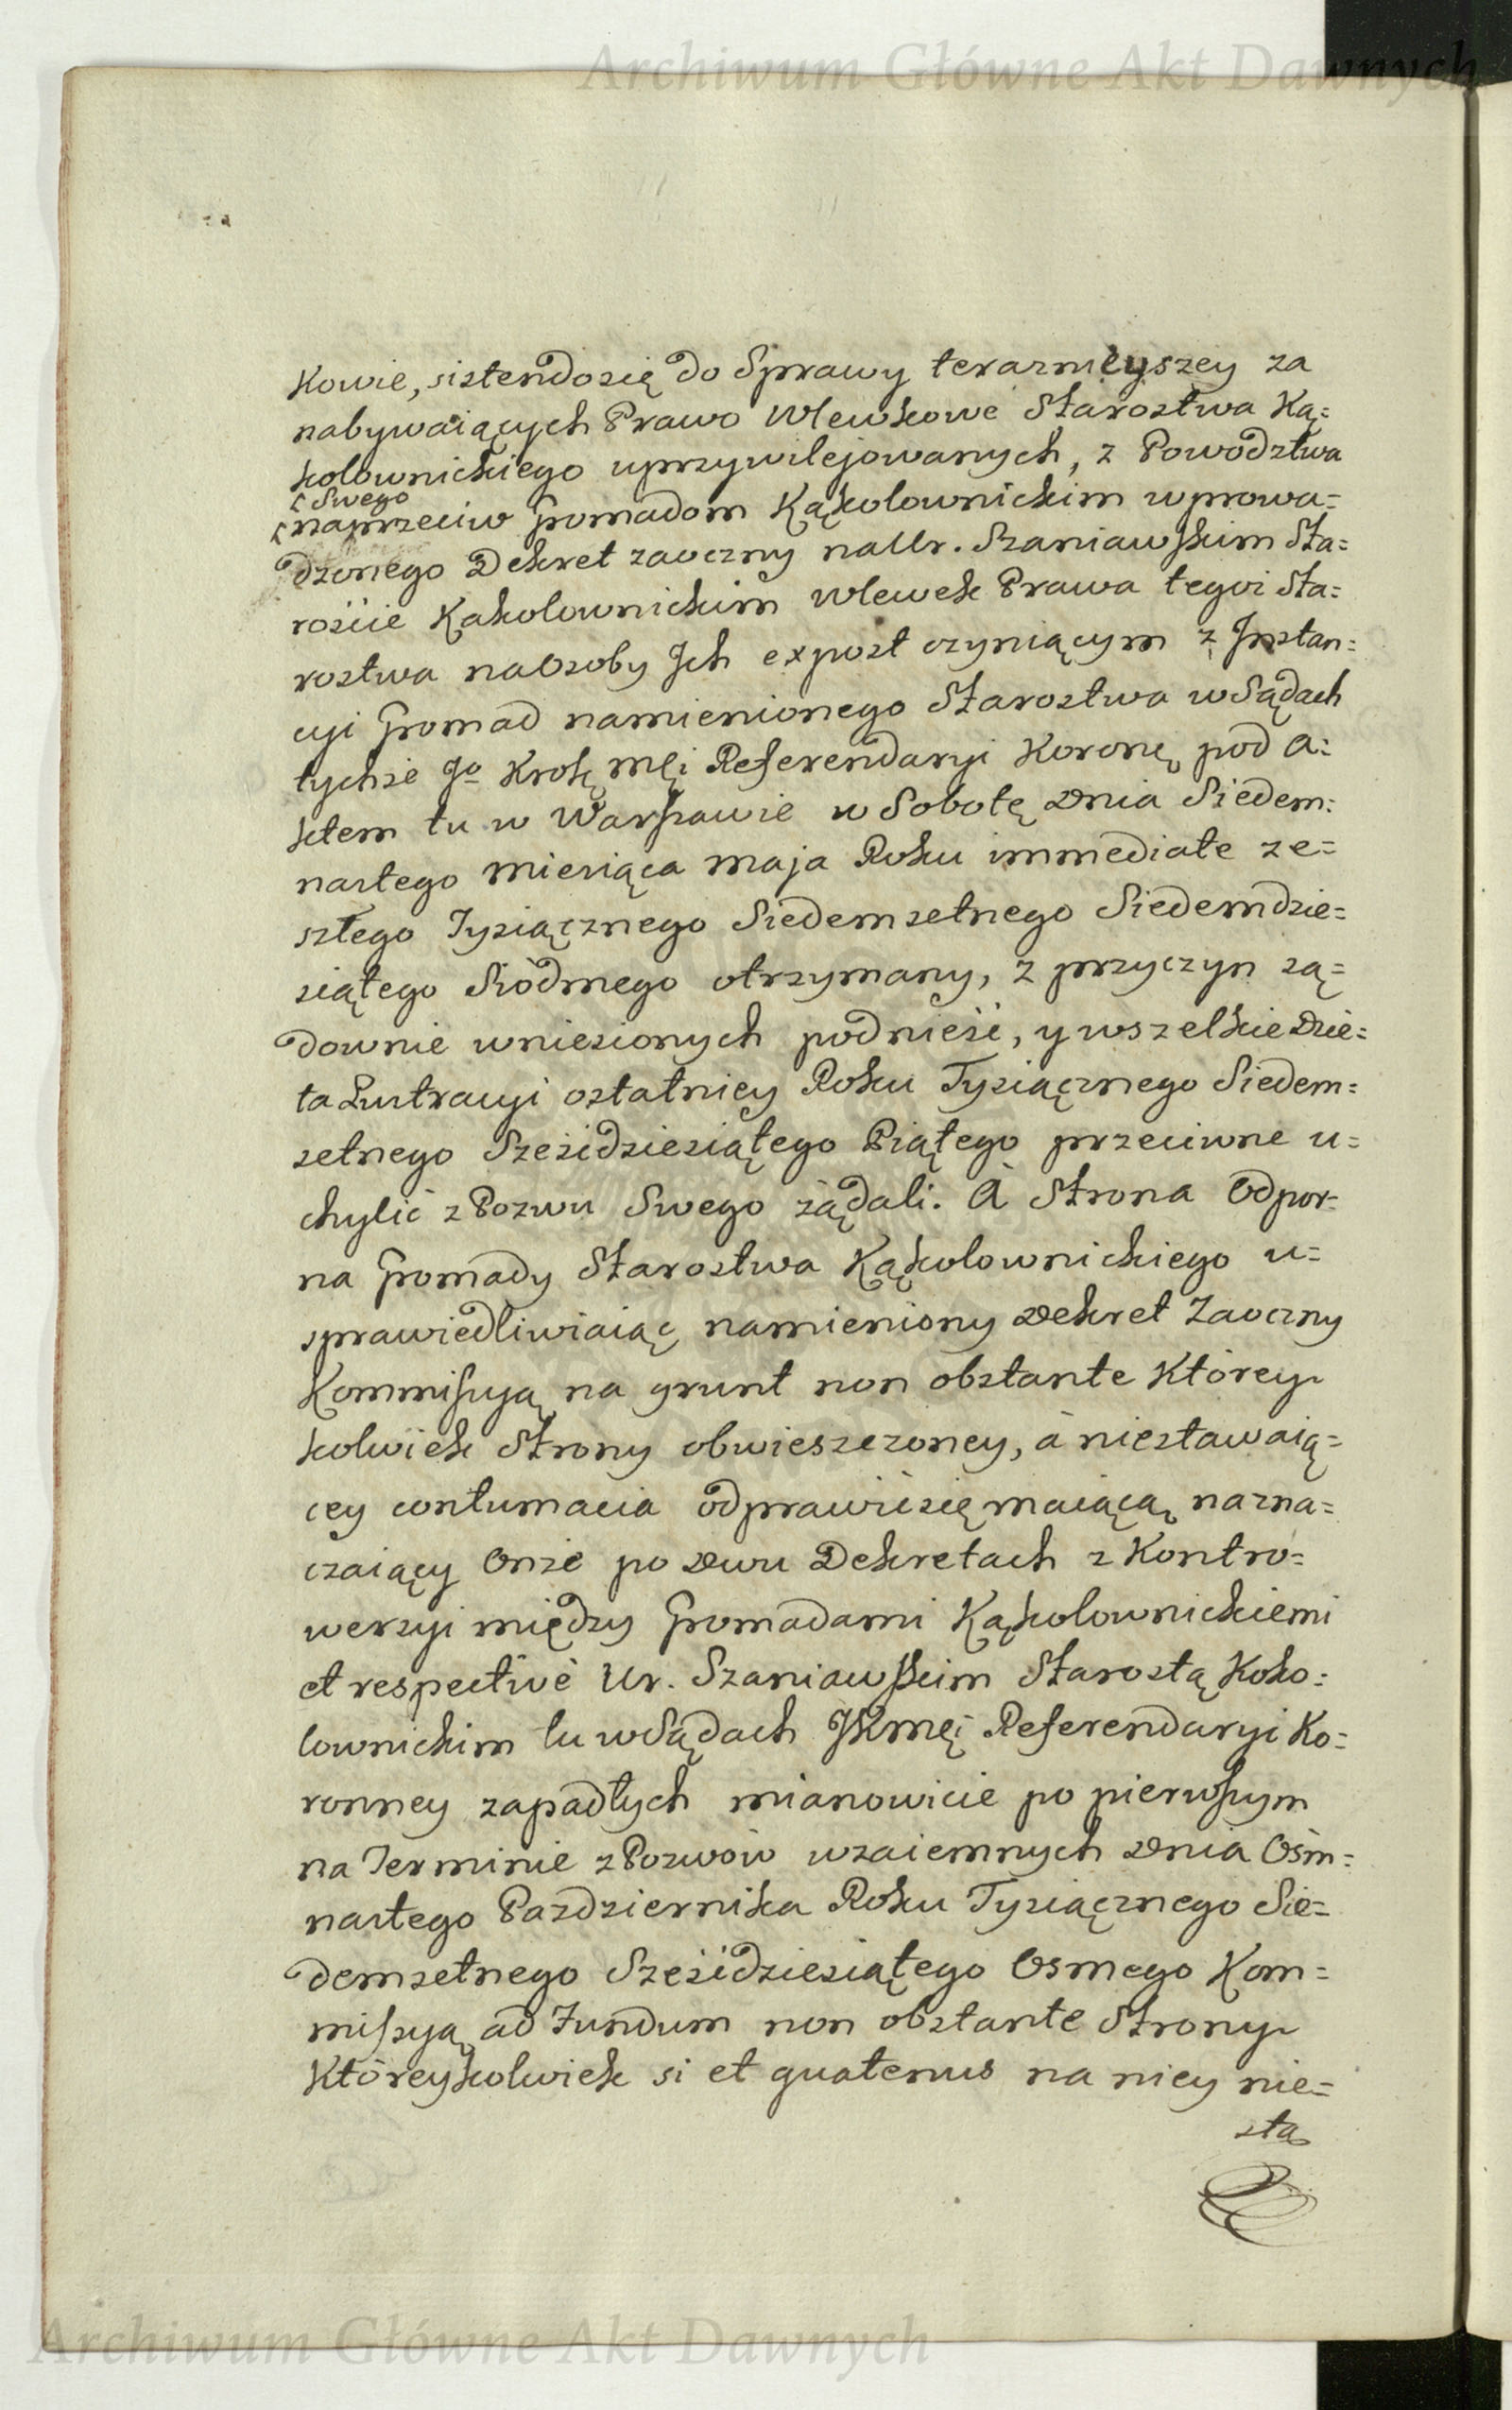 Archiwum Główne Akt Dawnych
kowie, sistendosię do Sprawy teraznieyszey za
nabywaiących Prawo Wlewkowe Starostwa Ką=
kolownickiego uprzywilejowanych, z Powodztwa
Swego
naprzeciw Gromadom Kąkolownickim wprowa=
dzonego Dekret zaoczny na Ur. Szaniawskim Sta=
roście Kąkolownickim wlewek Prawa tegoż Sta=
rostwa na Osoby Ich expost czyniącym z Instan=
cyi Gromad namienionego Starostwa w Sądach
tychże Jo Krolę Mći Referendaryi Koronę pod A=
ktem tu w Warszawie w Sobotę Dnia Siedem=
nastego Miesiąca Maja Roku immediate ze=
szłego Tysiącznego Siedemsetnego Siedemdzie=
siątego Siódmego otrzymany, z przyczyn są=
downie wniesionych podnieść, y wszelkie Dzie=
ła Lustracyi ostatniey Roku Tysiącznego Siedem=
setnego Sześćdziesiątego Piątego przeciwne u=
chylić z Pozwu Swego żądali. A Strona Odpor=
na Gromady Starostwa Kąkolownickiego u=
sprawiedliwiaiąc namieniony Dekret Zaoczny
Kommissyą na grunt non obstante Którey
kolwiek Strony obwieszczoney, à niestawaią=
cey contumacia odprawić się maiącą nazna=
czaiący Onże po Dwu Dekretach z Kontro=
wersyi między Gromadami Kąkolownickiemi
et respective Ur. Szaniawskim Starostą Koko=
lownickim tu w Sądach JKMći Referendaryi Ko=
ronney zapadłych mianowicie po pierwszym
na Terminie z Pozwów wzaiemnych Dnia Ośm=
nastego Pazdziernika Roku Tysiącznego Sie=
demsetnego Sześćdziesiątego Osmego Kom=
missyą ad Fundum non obstante Strony
Któreykolwiek si et quatenus na niey nie=
sta
Archiwum Główne Akt Dawnych